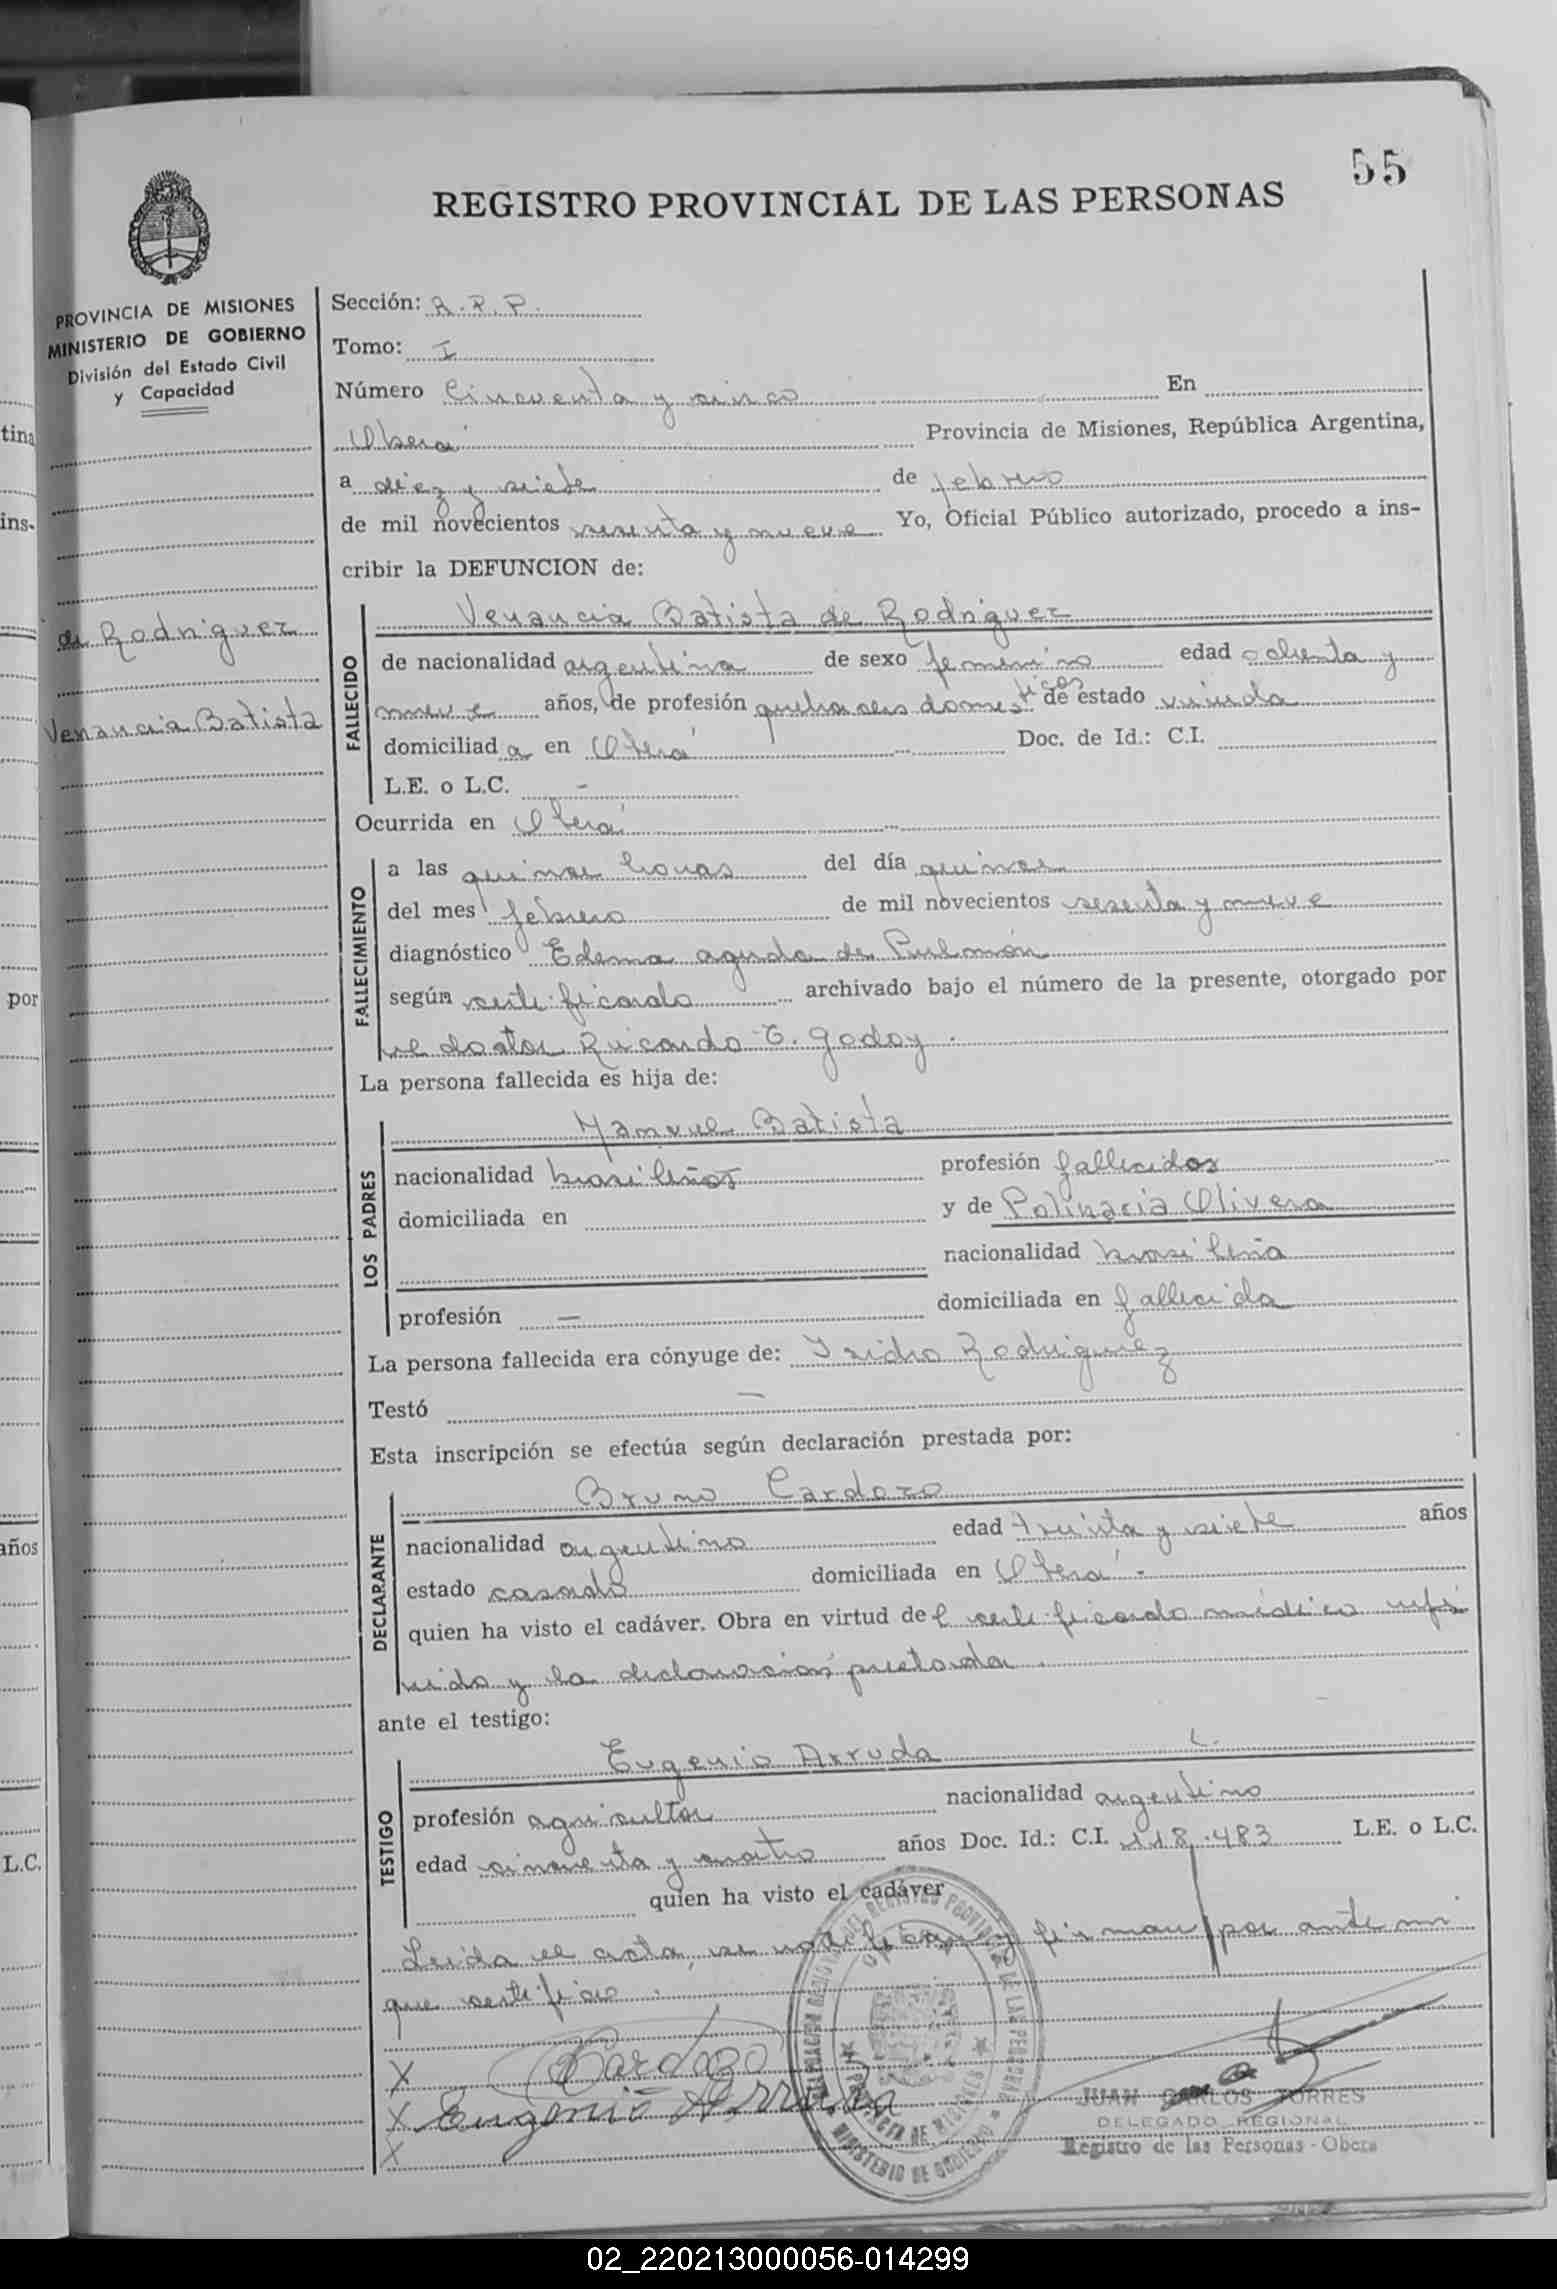 55
REGISTRO PROVINCIAL DE LAS PERSONAS
PROVINCIA DE MISIONES
MINISTERIO DE GOBIERNO
División del Estado Civil
y Capacidad
de Rodriguez
Venancia Batista
Sección: R.P.P.
Tomo: I
Número Cincuenta y cinco En
Oberá Provincia de Misiones, República Argentina,
a diez y siete de febrero
de mil novecientos sesenta y nueve Yo, Oficial Público autorizado, procedo a ins-
cribir la DEFUNCION de:
FALLECIDO
Venancia Batista de Rodriguez
de nacionalidad argentina de sexo femenino edad ochenta y
nueve años, de profesión quehaceres domesticos de estado viuda
domiciliada en Oberá Doc. de Id.: C.I.
L.E. o L.C. -
Ocurrida en Oberá
FALLECIMIENTO
a las quince horas del día quince
del mes febrero de mil novecientos sesenta y nueve
diagnóstico Edema agudo de Pulmón
según certificado archivado bajo el número de la presente, otorgado por
el doctor Ricardo E. Godoy.
La persona fallecida es hija de:
LOS PADRES
Manuel Batista
nacionalidad brasileños profesión fallecidos
domiciliada en y de Polinacia Olivera
nacionalidad brasileña
profesión — domiciliada en fallecida
La persona fallecida era cónyuge de: Isidro Rodriguez
Testó —
Esta inscripción se efectúa según declaración prestada por:
DECLARANTE
Bruno Cardozo
nacionalidad argentino edad treinta y siete años
estado casado domiciliada en Oberá.
quien ha visto el cadáver. Obra en virtud del certificado médico refe
rido y la declaración prestada.
ante el testigo:
TESTIGO
Eugenio Arruda
profesión agricultor nacionalidad argentino
edad cincuenta y cuatro años Doc. Id.: C.I. 118.483 L.E. o L.C.
quien ha visto el cadáver
Leida el acta, se ratifican y firman por ante mi
que certifico.
X Cardozo
X Eugenio Arruda
X
DELEGACION REGIONAL DEL REGISTRO PROVINCIAL DE LAS PERSONAS
OBERA
PROVINCIA DE MISIONES
MINISTERIO DE GOBIERNO
JUAN CARLOS TORRES
DELEGADO REGIONAL
Registro de las Personas - Obera
tina
ins-
por
años
L.C.
02_220213000056-014299